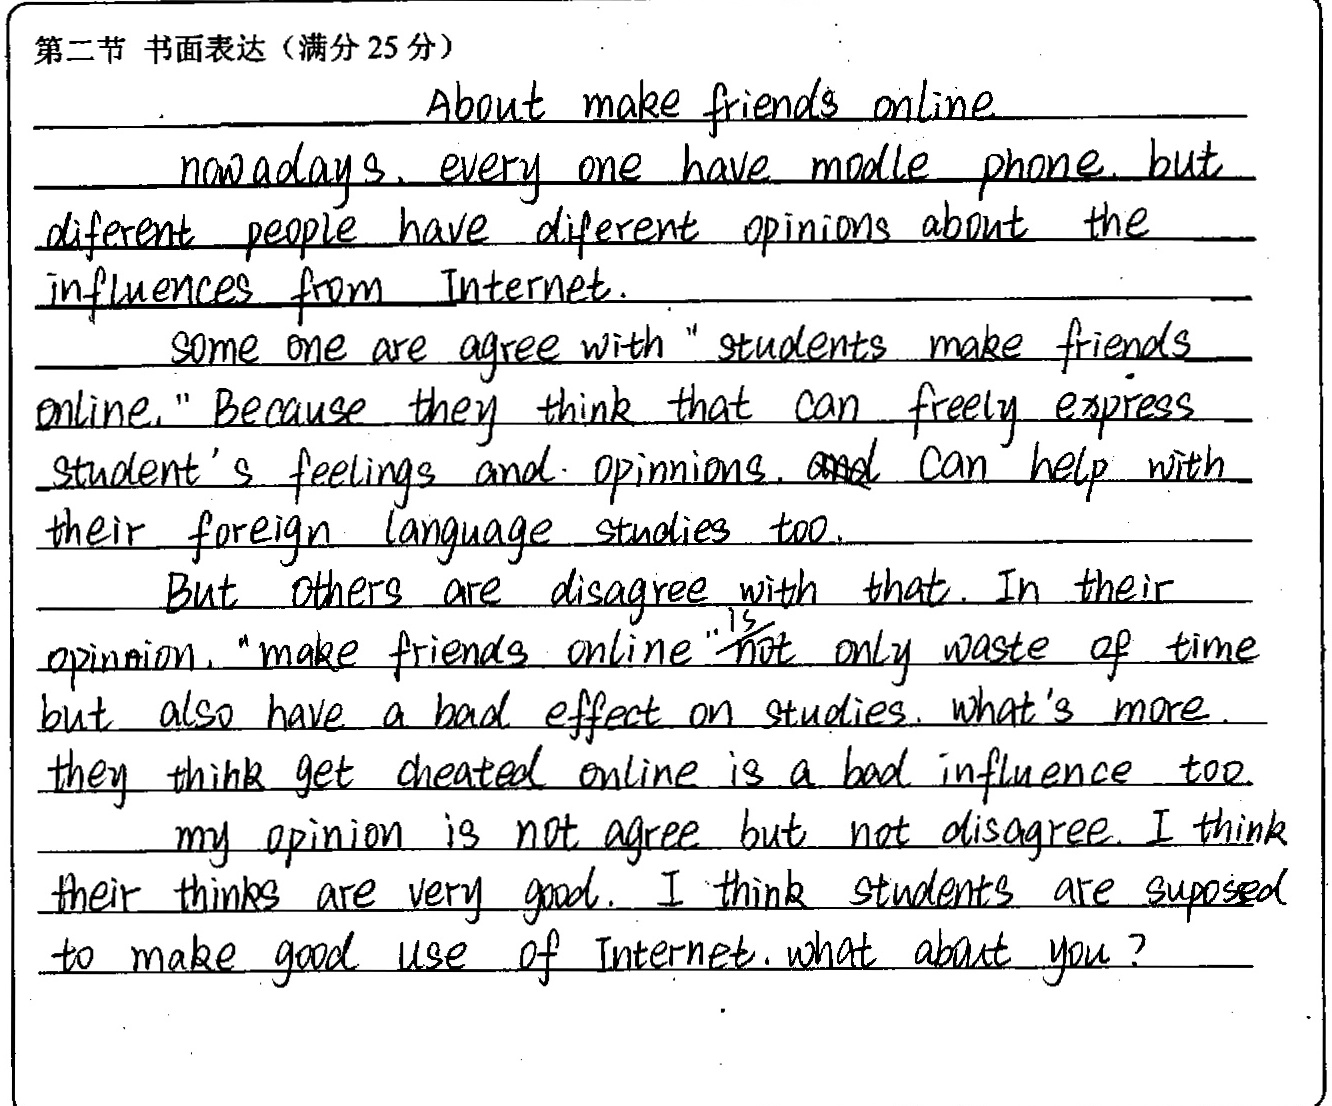 第二节 书面表达（满分 25 分）
About make friends online
nowadays. every one have modle phone. but
diferent people have diferent opinions about the
influences from Internet.
some one are agree with "students make friends
online." Because they think that can freely express
student's feelings and opinnions. and can help with
their foreign language studies too.
But others are disagree with that. In their
opinnion. "make friends online" is not only waste of time
but also have a bad effect on studies. what's more.
they think get cheated online is a bad influence too.
my opinion is not agree but not disagree. I think
their thinks are very good. I think students are suposed
to make good use of Internet. what about you?